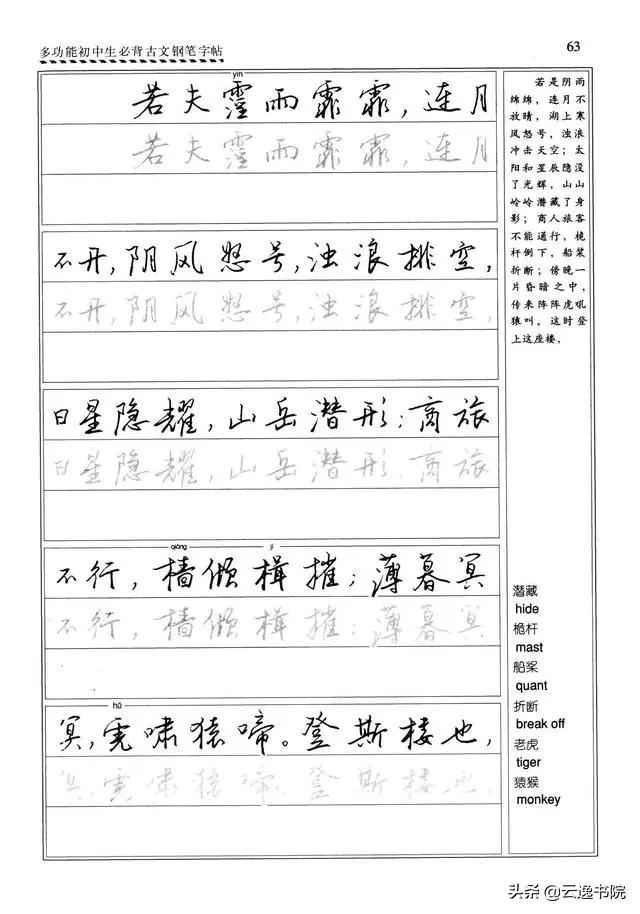 多功能初中生必背古文钢笔字帖
63
yín
若夫霪雨霏霏，连月
若夫霪雨霏霏，连月
不开，阴风怒号，浊浪排空，
不开，阴风怒号，浊浪排空，
日星隐耀，山岳潜形；商旅
日星隐耀，山岳潜形；商旅
qiáng jí
不行，樯倾楫摧；薄暮冥
不行，樯倾楫摧；薄暮冥
hǔ
冥，虎啸猿啼。登斯楼也，
冥，虎啸猿啼。登斯楼也，
若是阴雨
绵绵，连月不
放晴，湖上寒
风怒号，浊浪
冲击天空；太
阳和星辰隐没
了光辉，山山
岭岭潜藏了身
影；商人旅客
不能通行，桅
杆倒下，船桨
折断；傍晚一
片昏暗之中，
传来阵阵虎吼
猿叫。这时登
上这座楼，
潜藏
hide
桅杆
mast
船桨
quant
折断
break off
老虎
tiger
猿猴
monkey
头条 @云逸书院